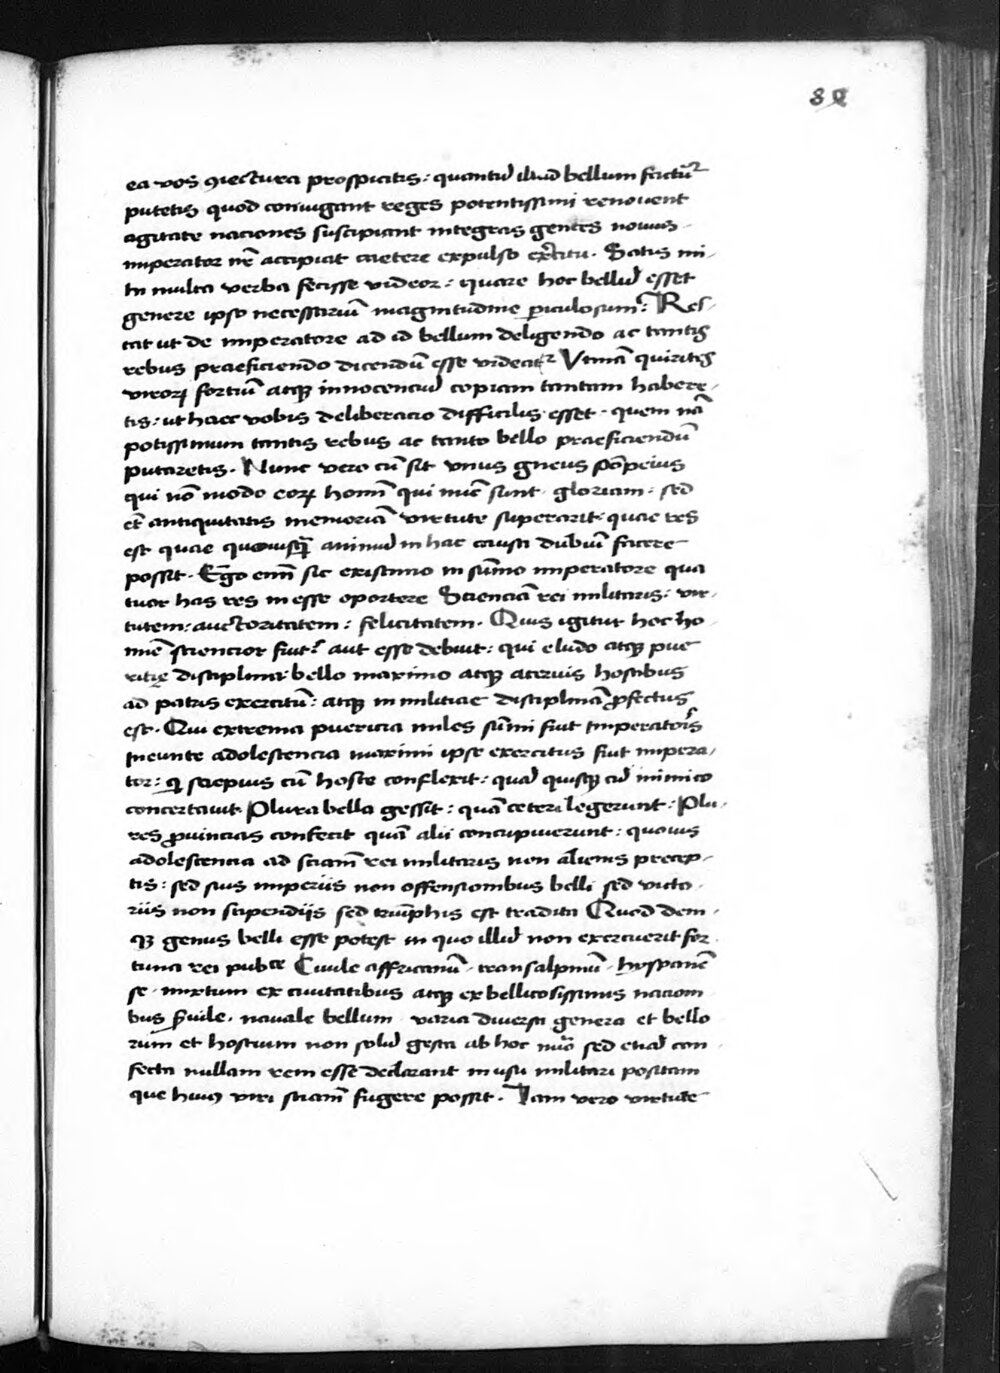 89
ea vos ꝯiectura prospicitis: quantū illud bellum factuꝝ
putetis quod coniugant reges potentissimi renouent
agitate naciones suscipiant integras gentes nouus
imperator nr̄ accipiat uetere expulso exercitu. Satis mi-
hi multa verba fecisse videor: quare hoc bellū esset
genere ipso necessariū magnitudine ꝑiculosum: Res-
tat ut de imperatore ad id bellum deligendo ac tantis
rebus praeficiendo dicendū esse videatr Vtinā quirites
viroꝝ fortiū atqꝫ innocenciū copiam tantam habere-
tis: ut haec vobis deliberacio difficilis esset. quem nā
potissimum tantis rebus ac tanto bello praeficiendū
putaretis. Nunc vero cū sit vnus gneus pōpeius
qui nō modo eoꝝ homī qui nūc sunt. gloriam: sed
et̄ antiquitatis memoriā virtute superarit: quae res
est quae quoiusqꝫ animū in hac causa dubiū facere
possit. Ego enī sic existimo in sūmo imperatore qua
tuor has res in esse oportere Scienciā rei militaris: vir-
tutem: auctoritatem: felicitatem. Quis igitur hoc ho-
mīe sciencior fuit? aut esse debuit: qui e ludo atqꝫ pue
ritię disciplina bello maximo atqꝫ acervis hostibus
ad patris exercitū: atqꝫ in militiae disciplinā ꝓfectus
est. Qui extrema puericia miles sūmi fuit Imperatoris
Ineunte adolescencia maximi ipse exercitus fuit impera-
tor: qͥ saepius cū hoste conflexit: quā quisqꝫ cū inimico
concertauit. Plura bella gessit: quā ceteri legerunt: Plu-
res ꝓuincias confecit quā alii concupiuerunt: quouis
adolescencia ad sciam̄ rei militaris non alienis precep-
tis: sed suis imperiis non offensionibus belli sed victo-
riis non stipendijs sed triūphis est tradita Quod deni-
qꝫ genus belli esse potest in quo illū non exercuerit for-
tuna rei publce Ciuile affricanū. transalpinū. hyspaniē
se. mixtum ex ciuitatibus atqꝫ ex bellicosissimis nacioni
bus ẜuile. nauale bellum. varia diuersa genera et bello
rum et hostium non solū gesta ab hoc uno sed etiā con-
fecta nullam rem esse declarant in usu militari positam
que huiꝯ viri sciam̄ fugere possit. Iam vero virtute